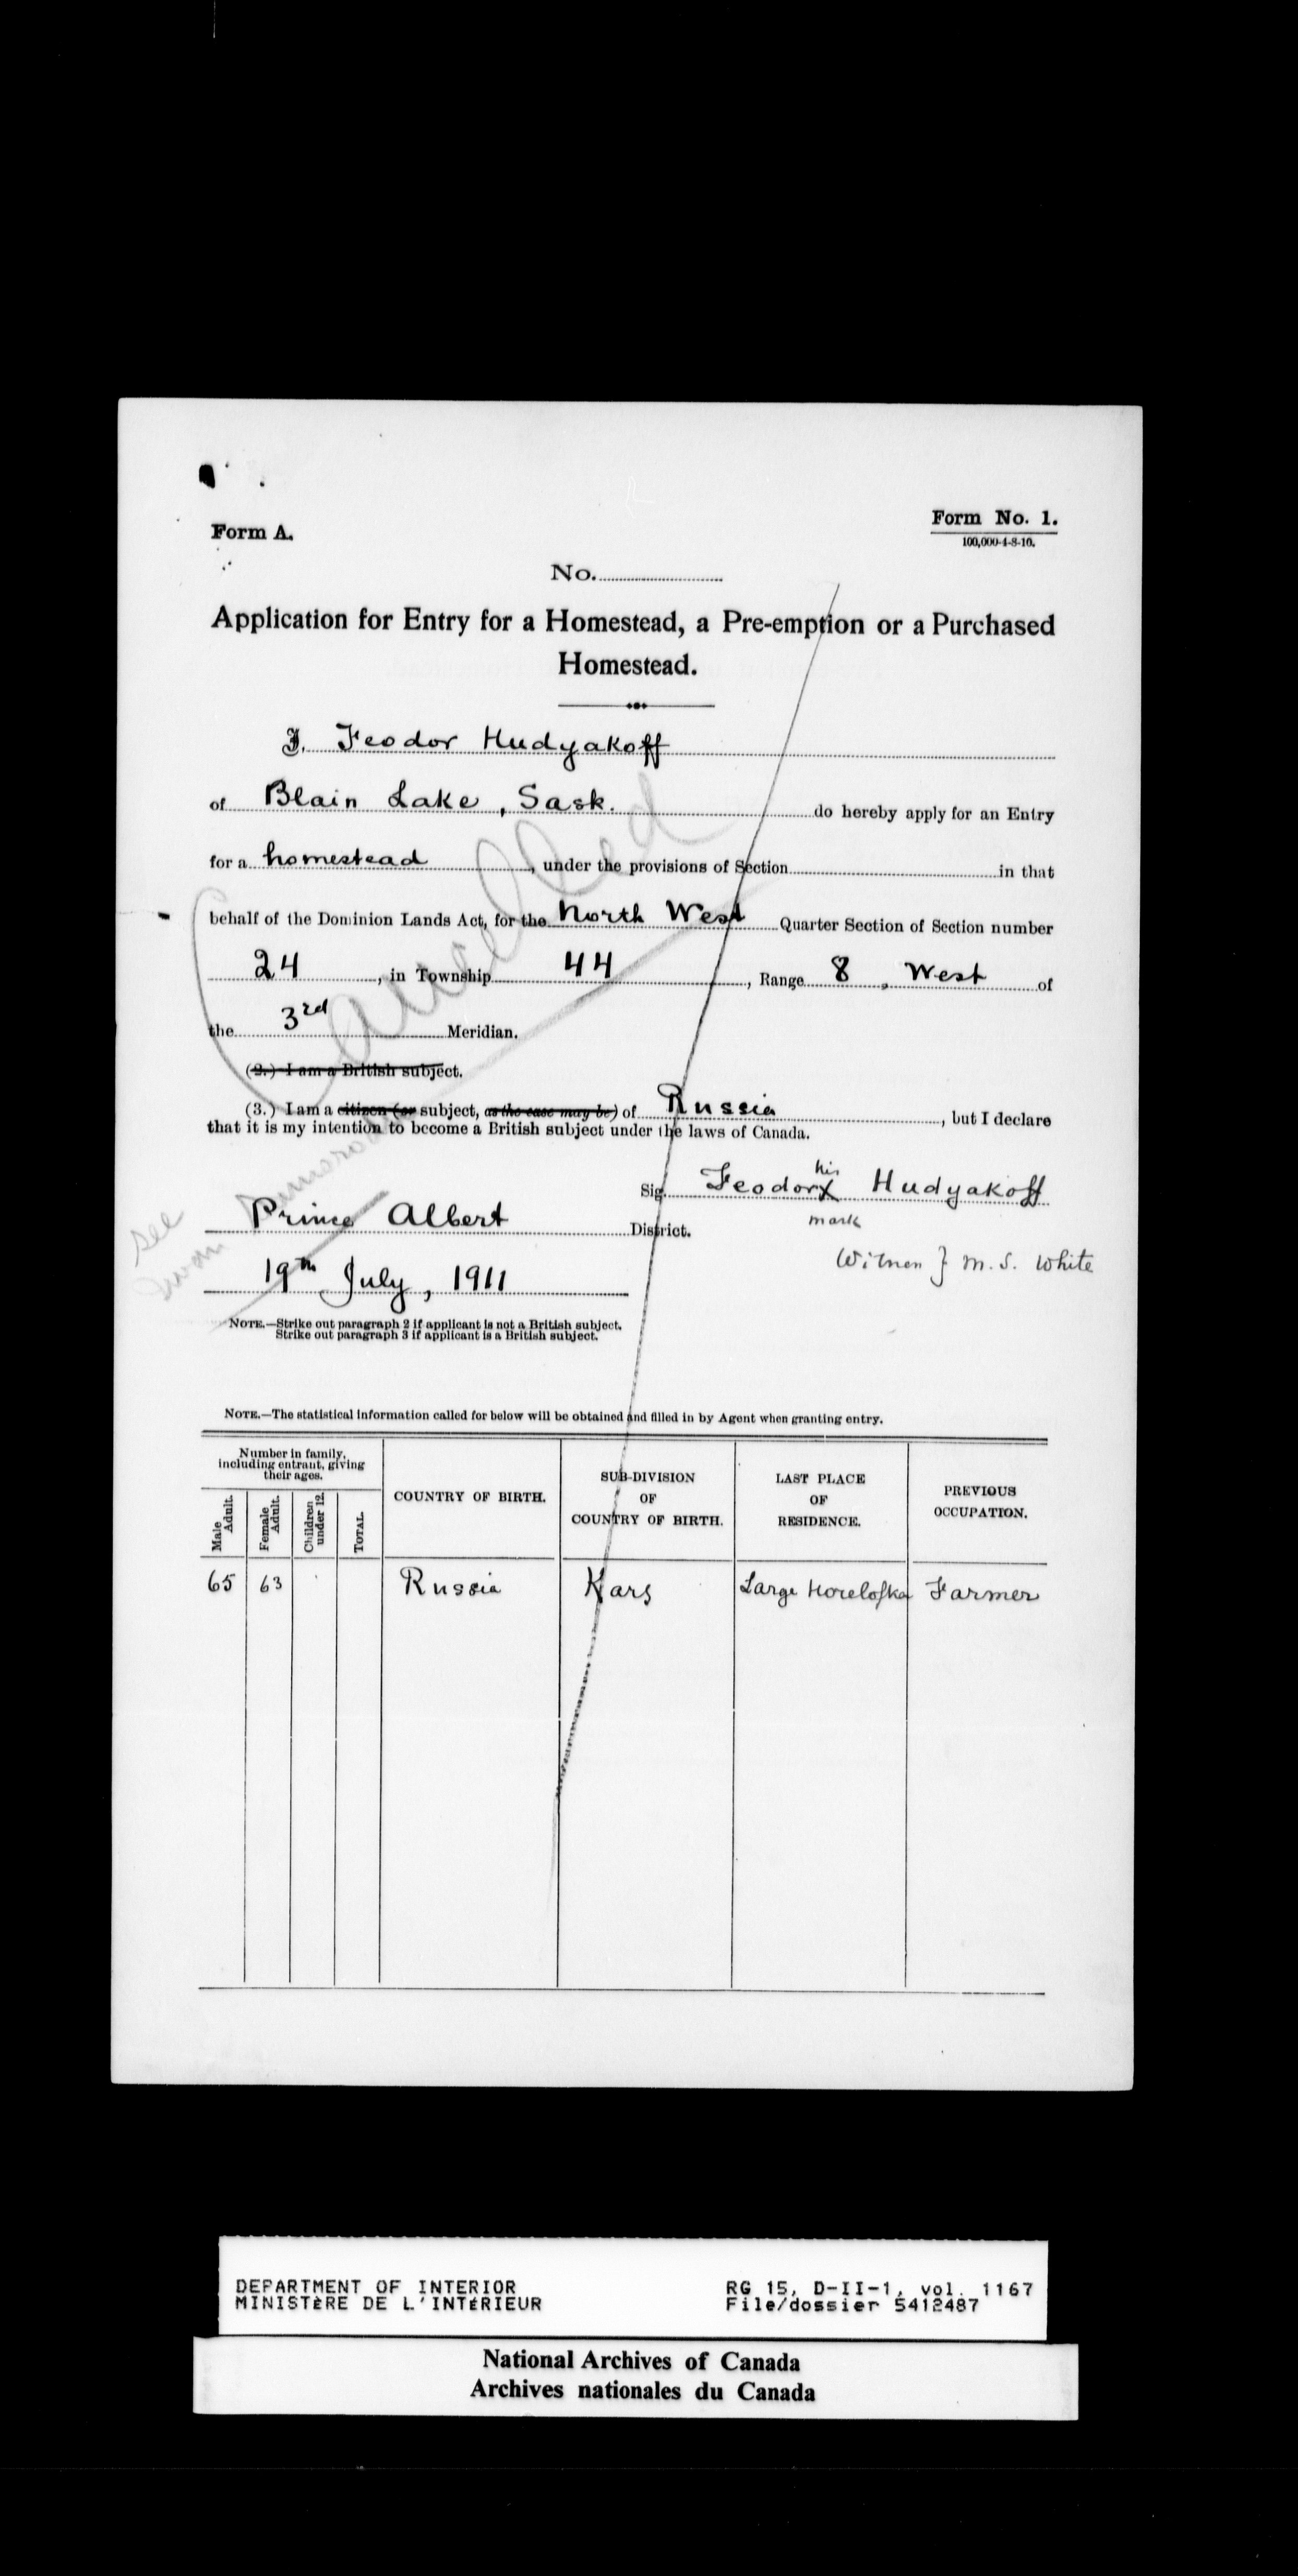 Form A.
Form No. 1.
100,000-4-8-10.
No.
Application for Entry for a Homestead, a Pre-emption or a Purchased
Homestead.
I, Feodor Hudyakoff
of Blain Lake, Sask. do hereby apply for an Entry
for a homestead, under the provisions of Section in that
behalf of the Dominion Lands Act, for the North West Quarter Section of Section number
24, in Township 44, Range 8, West of
the 3rd Meridian.
Cancelled
(2.) I am a British subject.
(3.) I am a citizen (or subject, as the case may be) of Russia, but I declare
that it is my intention to become a British subject under the laws of Canada.
Sig. Feodor X Hudyakoff
his
mark
Prince Albert District.
Witness } M. S. White
see
19th July, 1911
NOTE.—Strike out paragraph 2 if applicant is not a British subject.
Strike out paragraph 3 if applicant is a British subject.
NOTE.—The statistical information called for below will be obtained and filled in by Agent when granting entry.
Number in family, including entrant, giving their ages.
Male Adult.
Female Adult.
Children under 12.
TOTAL.
COUNTRY OF BIRTH.
SUB-DIVISION OF COUNTRY OF BIRTH.
LAST PLACE OF RESIDENCE.
PREVIOUS OCCUPATION.
65 63 Russia Kars Large Farmer
DEPARTMENT OF INTERIOR
MINISTÈRE DE L'INTÉRIEUR
RG 15, D-II-1, vol. 1167
File/dossier 5412487
National Archives of Canada
Archives nationales du Canada